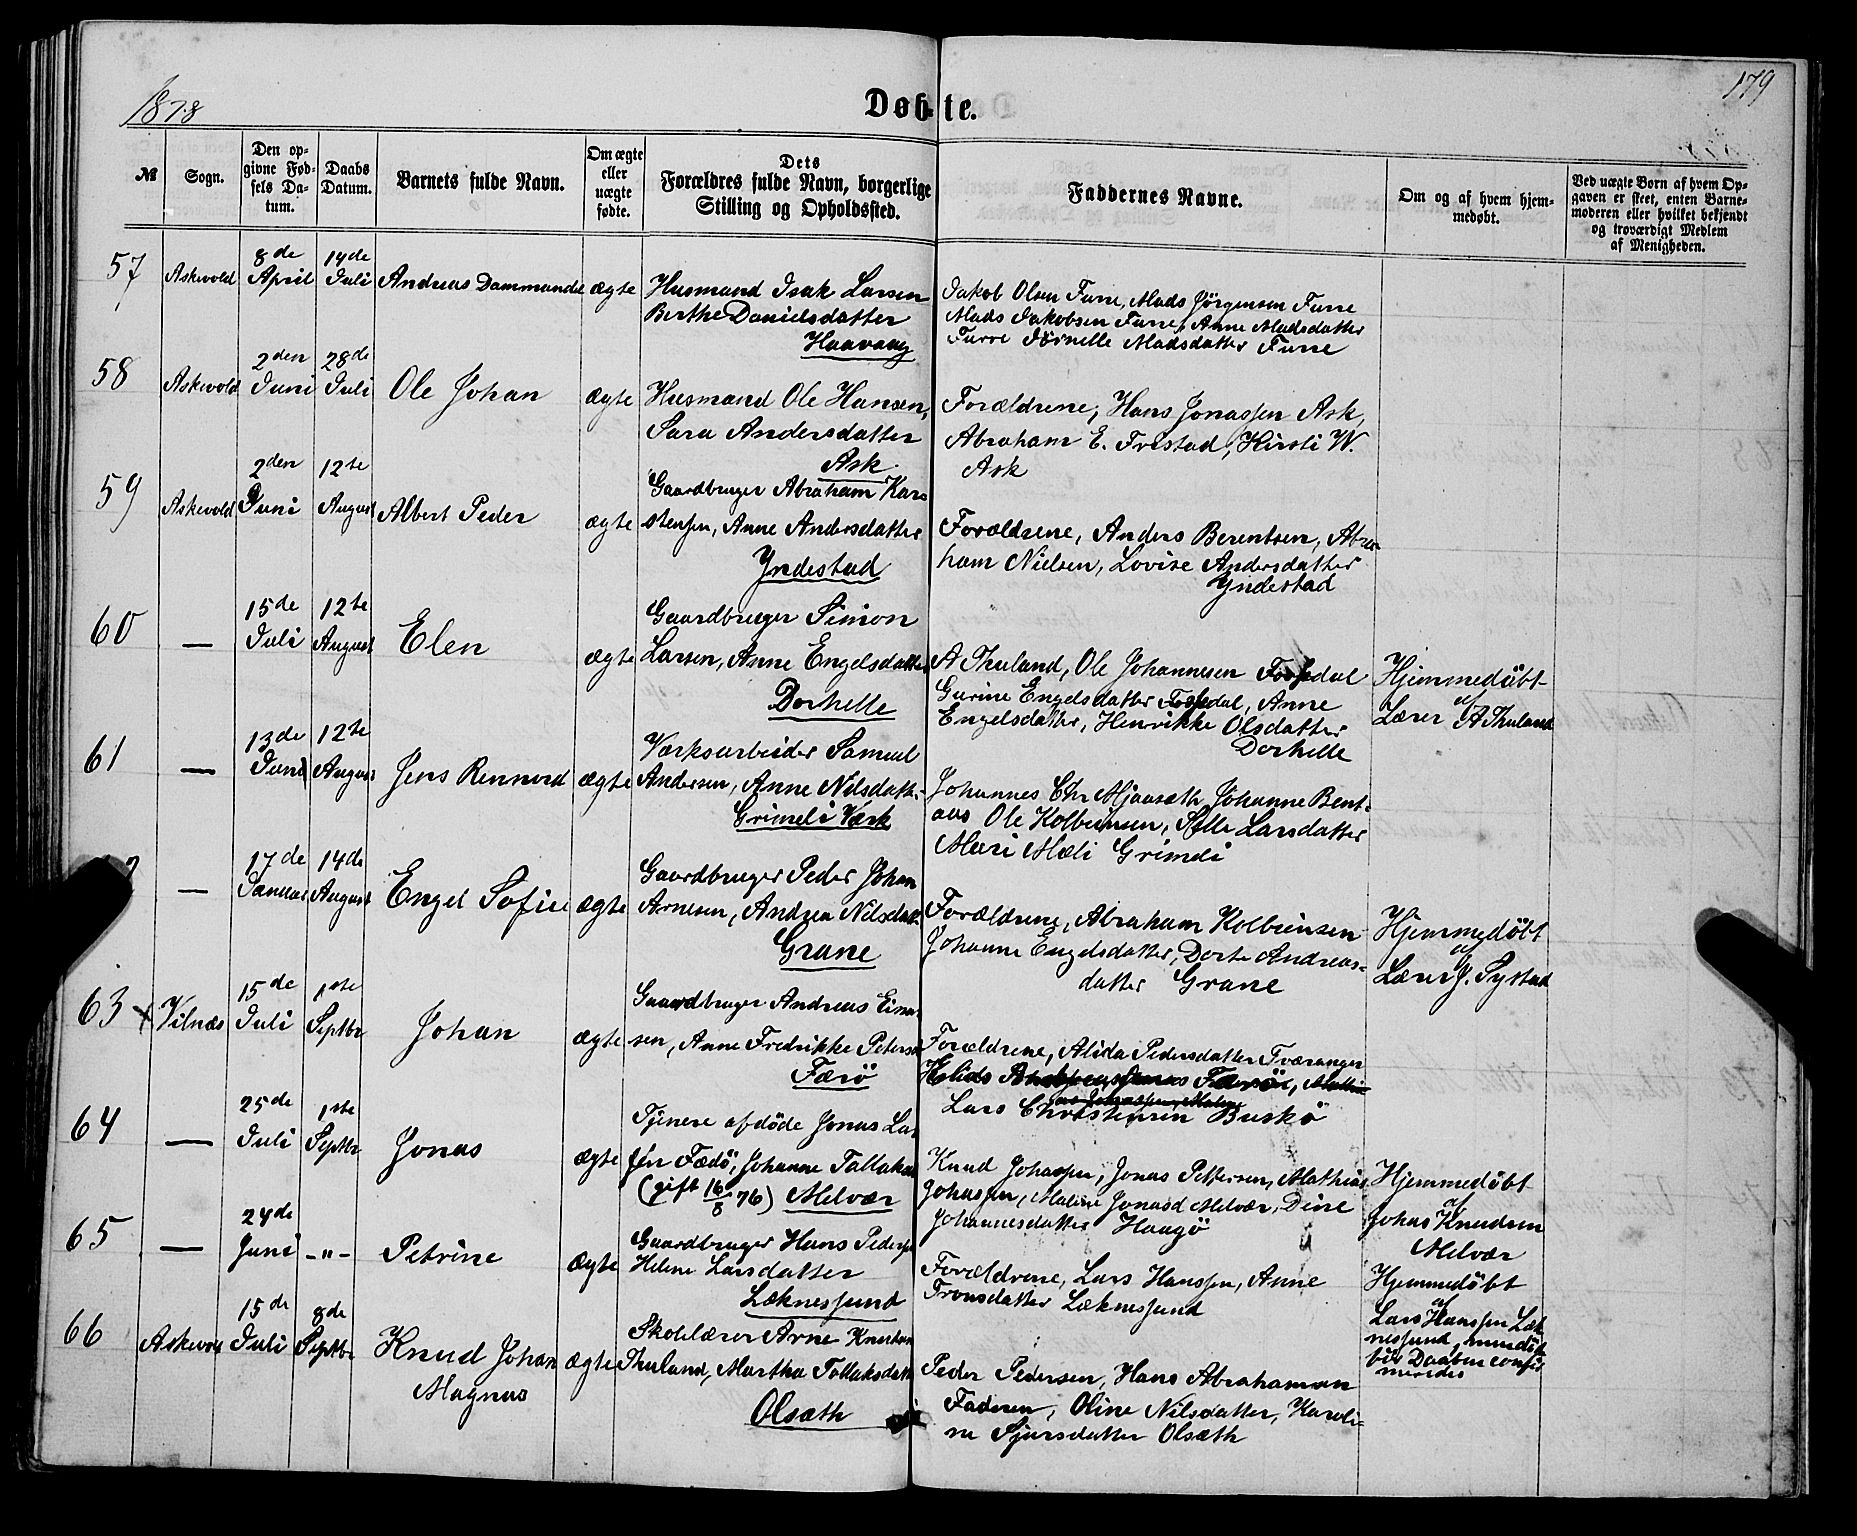 1878
Døbte.
179
№
Sogn.
Den op-
givne Fød-
sels Da-
tum.
Daabs
Datum.
Barnets fulde Navn.
Om ægte
eller
uægte
fødte.
Dets
Forældres fulde Navn, borgerlige
Stilling og Opholdssted.
Faddernes Navne.
Om og af hvem hjem-
medøbt.
Ved uægte Børn af hvem Op-
gaven er skeet, enten Barne-
moderen eller hvilket bekjendt
og troværdigt Medlem
af Menigheden.
57
Askevold
8de
April
14de
Juli
Andreas
ægte
Husmand Isak Larsen
Berthe Danielsdatter
Haavaag
Jakob Olsen Furre, Mads Jørgensen Furre
Mads Jakobsen Furre, Anne Madsdatter
Furre Madsdatter Furre
58
Askevold
2den
Juni
28de
Juli
Ole Johan
ægte
Husmand Ole Hansen,
Sara Andersdatter
Ask
Forældrene, Hans Jonassen Ask,
Abraham E. Frestad, Kirsti W.
Ask
59
Askevold
2den
Juni
12te
August
Albert Peder
ægte
Gaardbruger Abraham Kar-
stensen, Anne Andersdatter
Yndestad
Forældrene, Anders Berentsen, Abra-
ham Nielsen, Lovise Andersdatter
Yndestad
60
—
15de
Juli
12te
August
Elen
ægte
Gaardbruger Simon
Larsen, Anne Engelsdatter
Dorhelle
A Thuland, Ole Johannesen Fossedal
Gurine Engelsdatter Fossedal, Anne
Engelsdatter, Henrikke Olsdatter
Dorhelle
Hjemmedøbt
af
Lærer A Thuland
61
—
13de
Juni
12te
August
Jens Rennord
ægte
Værksarbeider Samuel
Andersen, Anne Nilsdatt.
Grimeli Værk
Johannes Chr Mjaaseth, Johanne Bent-
aas Ole Kolbeinsen, Larsdatter
Mari Mæli Grimeli
—
17de
Januar
14de
August
Engel Sofie
ægte
Gaardbruger Peder Johan
Arnesen, Andrea Nilsdatt.
Grane
Forældrene, Abraham Kolbeinsen
Johanne Engelsdatter, Dorte Andreas-
datter Grane
Hjemmedøbt
af
Lærer J. Systad
63
Vilnæs
15de
Juli
1ste
Septbr
Johan
ægte
Gaardbruger Andreas Eina-
sen, Anne Fredrikke Peters
Færø
Forældrene, Alida Pedersdatter Tværanger
Lars Christensen Buskø
64
—
25de
Juli
1ste
Septbr
Jonas
ægte
Tjenere afdøde Jonas Lar-
sen Fædø, Johanne Tallaks
(gift 16/8 76) Melvær
Knud Johassen, Jonas Pettersen, Mathias
Johassen, Malene Jonasd Melvær, Dine
Johannesdatter Haagø
Hjemmedøbt
af
Johas Knudsen
Melvær
65
—
24de
Juni
-"-
Petrine
ægte
Gaardbruger Hans Peders
Helene Larsdatter
Læknessund
Forældrene, Lars Hanssen, Anne
Tronsdatter Læknessund
Hjemmedøbt
af
Lars Hanssen Læk-
nessund,
Daaben confir-
meredes
66
Askevold
15de
Juli
8de
Septbr
Knud Johan
Magnus
ægte
Skolelærer Arne Knudsen
Thuland, Martha Tollaksdatt
Olsæth
Peder Pedersen, Hans Abrahamsen
Faderen, Oline Nilsdatter, Karoli-
ne Sjursdatter Olsæth